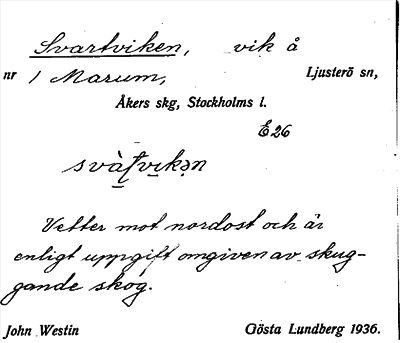 Svartviken, vik å
nr 1 Marum, Ljusterö sn,
Åkers skg, Stockholms l.
E26
Vetter mot nordost och är
enligt uppgift omgiven av skug-
gande skog.
John Westin Gösta Lundberg 1936.